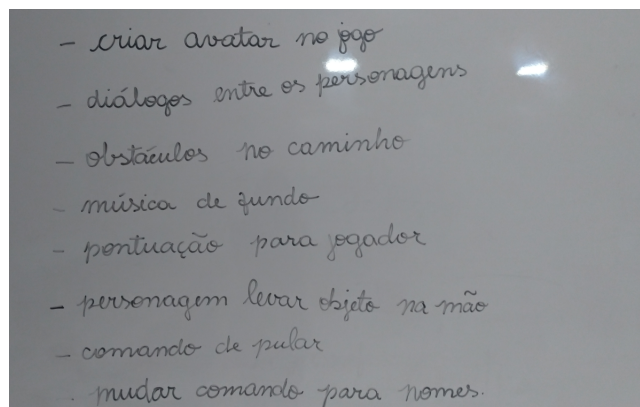 - criar avatar no jogo
- diálogos entre os personagens
- obstáculos no caminho
- música de fundo
- pontuação para jogador
- personagem levar objeto na mão
- comando de pular
. mudar comando para nomes.